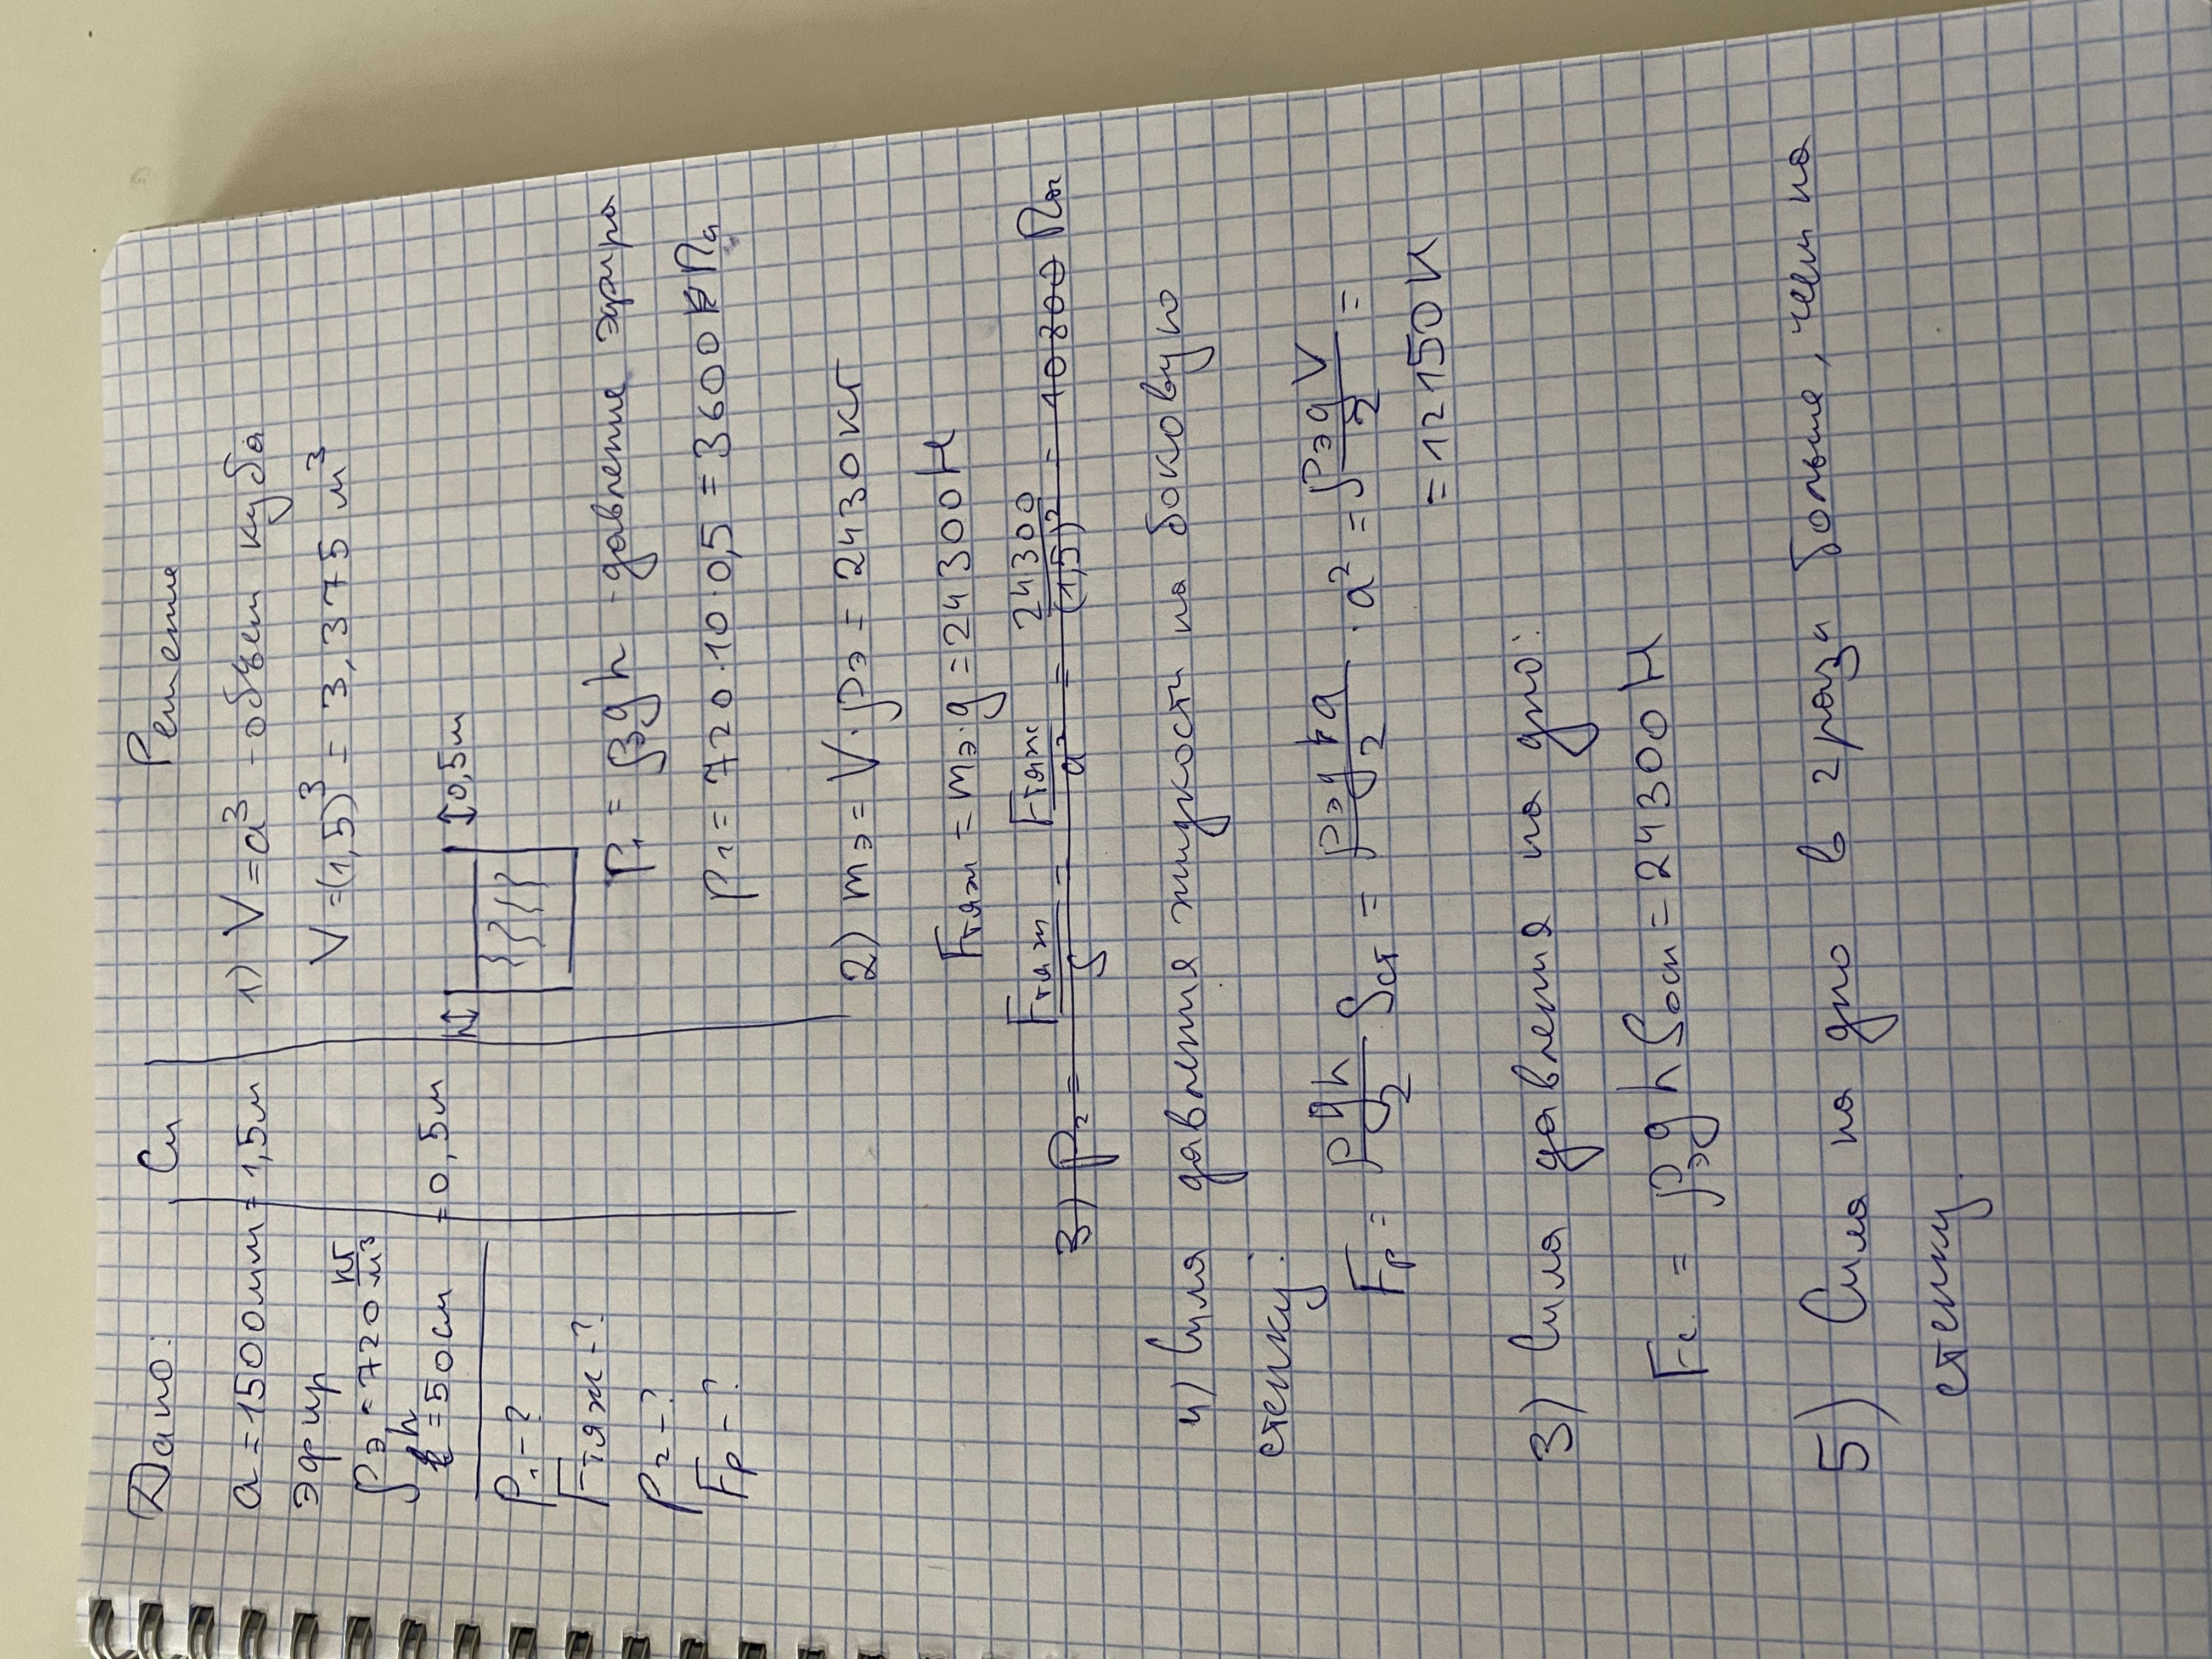 Дано:
Си
Решение
a = 1500мм = 1,5м
эфир
ρэ = 720 кг/м³
h = 50см = 0,5м
P₁ - ?
Fтяж - ?
P₂ - ?
Fр - ?
1) V = a³ - объем куба
V = (1,5)³ = 3,375 м³
h ↕ ↕0,5м
P₁ = ρэgh - давление эфира
P₁ = 720·10·0,5 = 3600 Па
2) mэ = V·ρэ = 2430кг
Fтяж = mэ·g = 24300Н
3) P₂ = Fтяж/S = Fтяж/a² = 24300/(1,5)² = 10800 Па
4) Сила давления жидкости на боковую
стенку:
Fр = ρgh/2 Sст = ρэga/2 · a² = ρэgV/2 =
= 12150Н
3) Сила давления на дно:
= ρэghSосн = 24300Н
5) Сила на дно в 2 раза больше, чем на
стенку.